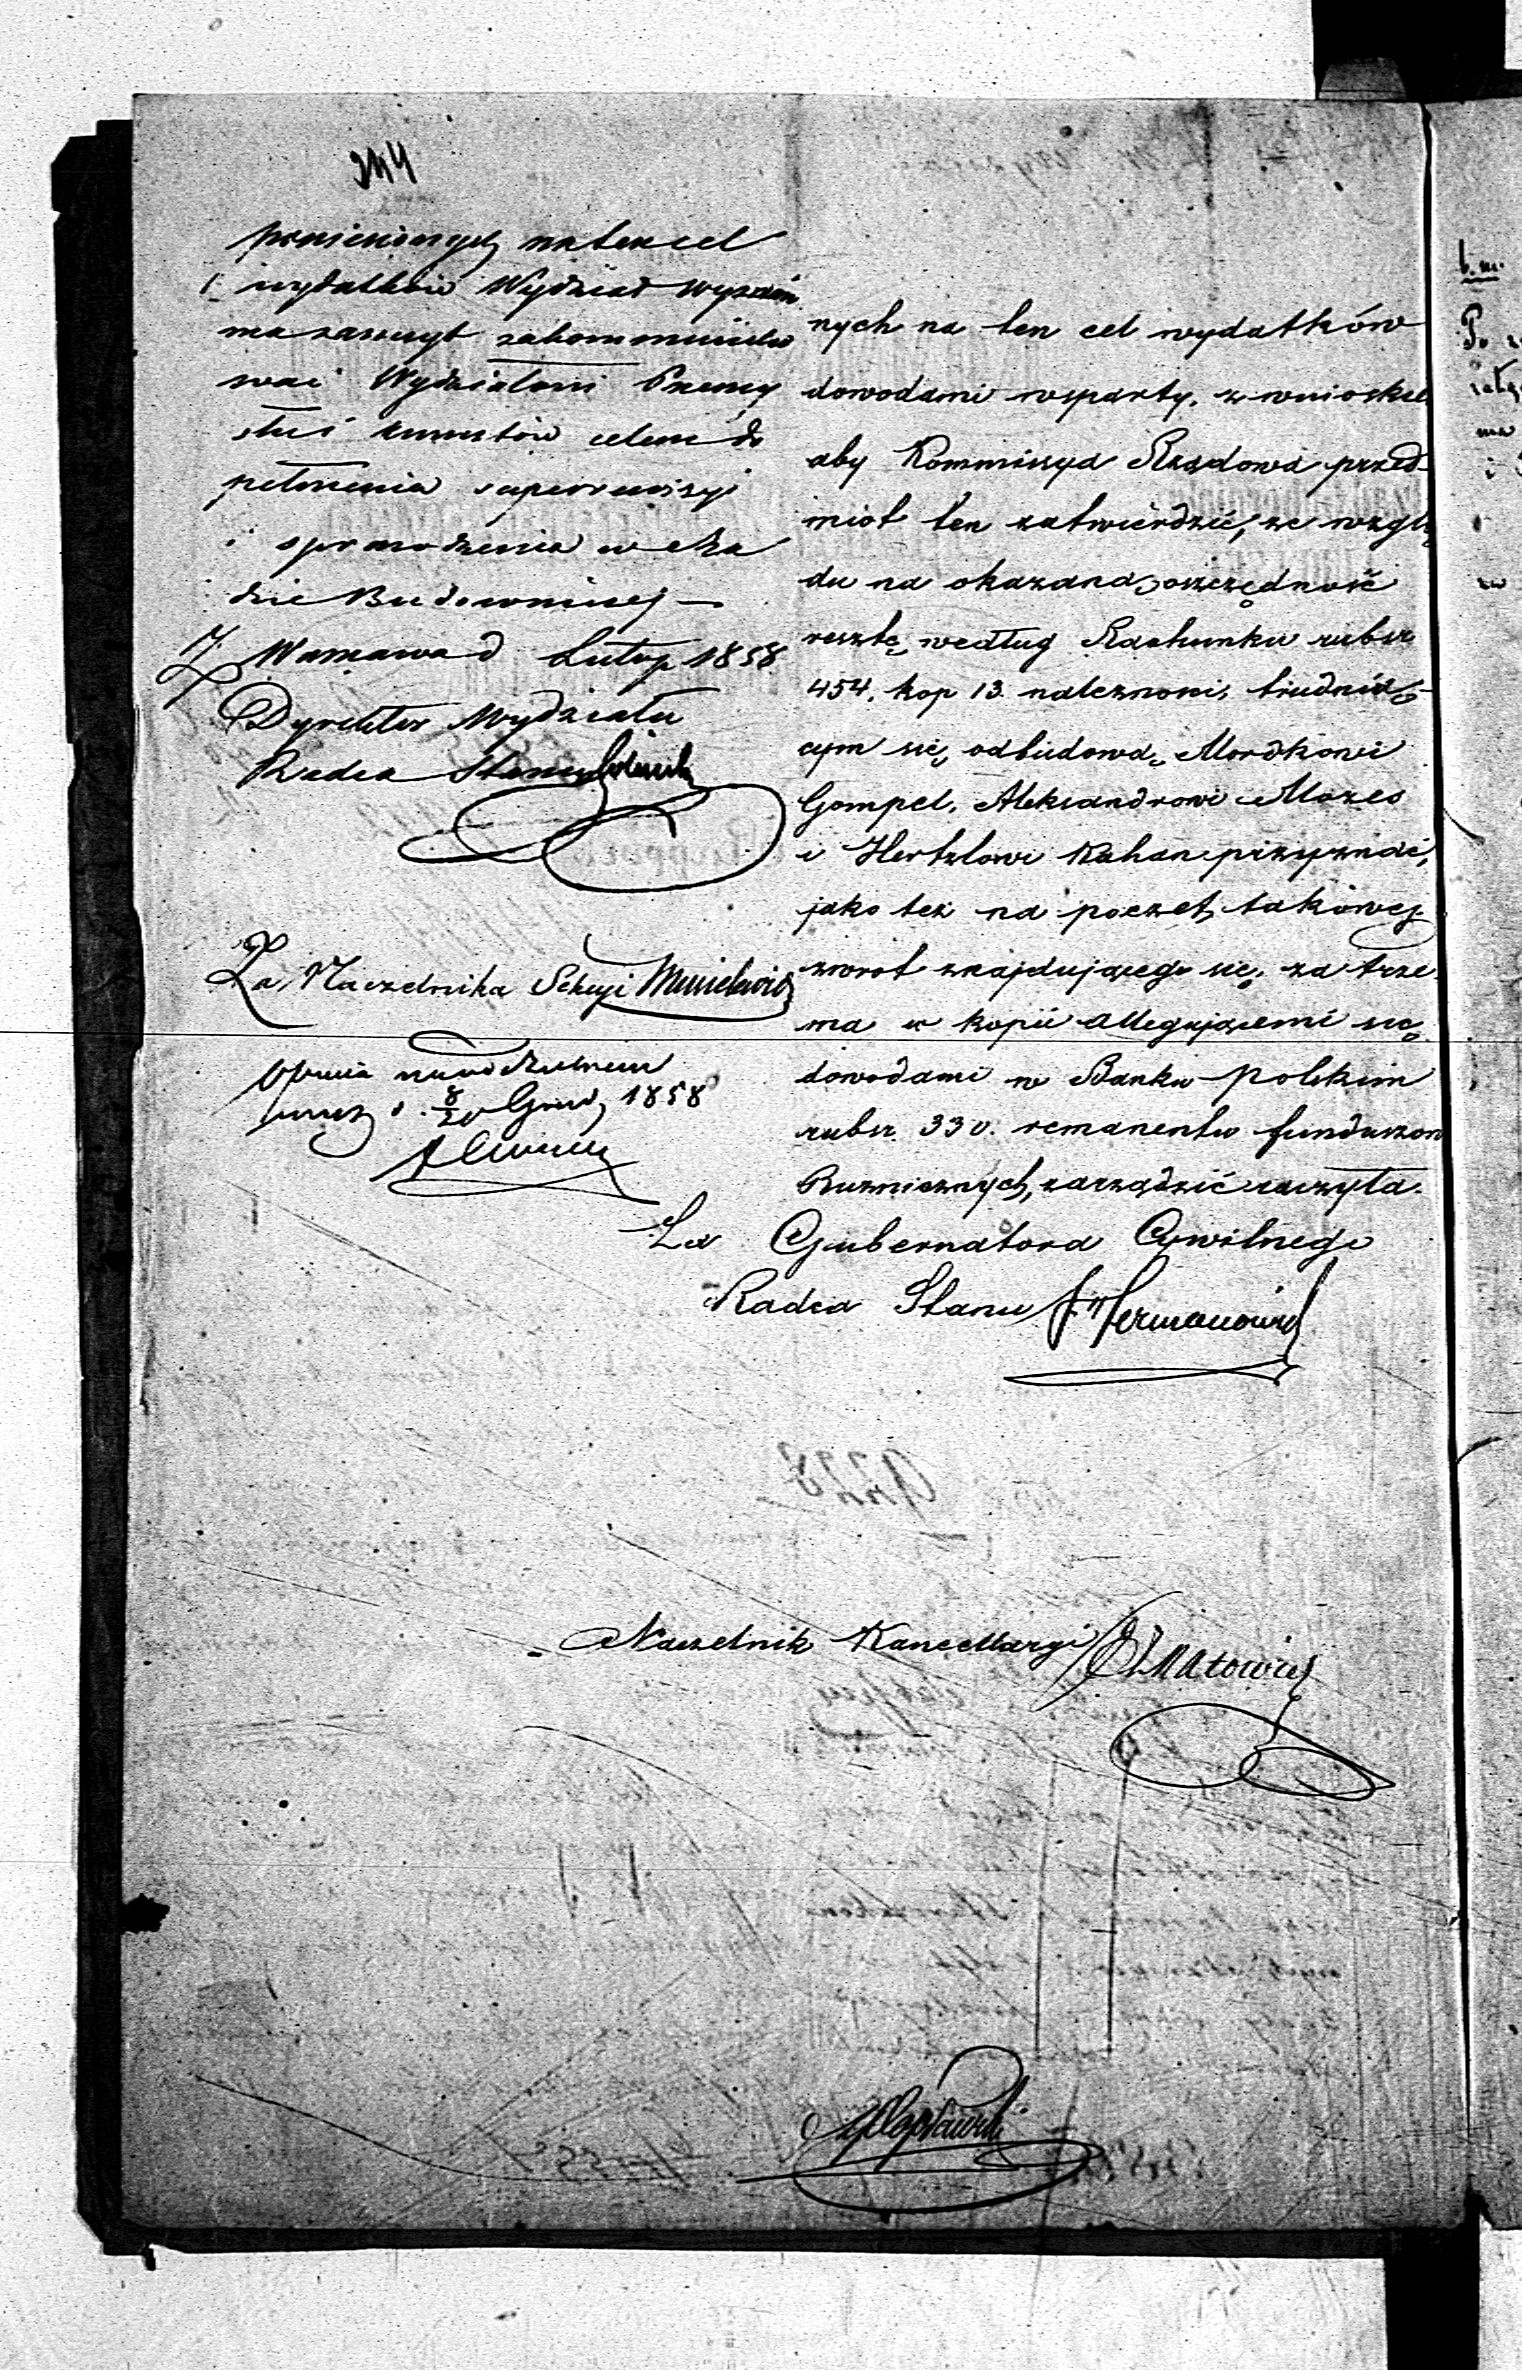 244
poniesionych na ten cel
wydatków Wydział Wyznań
ma zaszczyt zakommuniko
wać Wydziałowi Przemy
słu i Kunsztów celem do
pełnienia superrewizyi
i sprowadzenia w skła
dzie Budowniczej
Warszawa d Lutego 1858
Dyrektor Wydziału
Radca Stanu
Za Naczelnika Sekcyi
8/20 Grud. 1858
nych na ten cel wydatków
dowodami wsparty, z wnioskiem
aby Kommissya Rządowa przed-
miot ten zatwierdzić, ze wzglę
du na okazaną oszczędność
resztę według Rachunku rubsr
454, kop 13. należności, trudnią-
cym się odbudową, Mordkowi
Gompel, Aleksandrowi Mozes
i Hertzlowi Kahan przyznać,
jako też na poczet takowej
zwrot znajdującego się, za trze
ma w kopii allegującemi się
dowodami w Banku polskim
rubsr 330. remanentu funduszów
Buznicznych, zarządzić raczyła.
Za Gubernatora Cywilnego
Radca Stanu J Hermanowicz
Naczelnik Kancellaryi